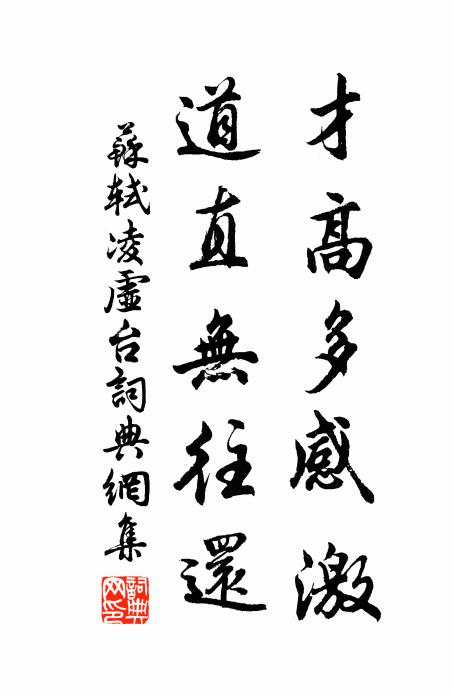 才高多感激
道直無往還
蘇軾凌虛台詞典網集
詞典網印